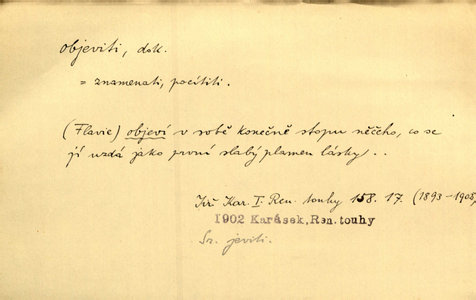 objeviti, dok.
= znamenati, pocítiti.
(Flavie) objeví v sobě konečně stopu něčeho, co se
jí uzdá jako první slabý plamen lásky..
Jiř Kar. I. Ren. touhy 158. 17. (1893-1908)
1902 Karásek, Ren. touhy
Sr. jeviti.